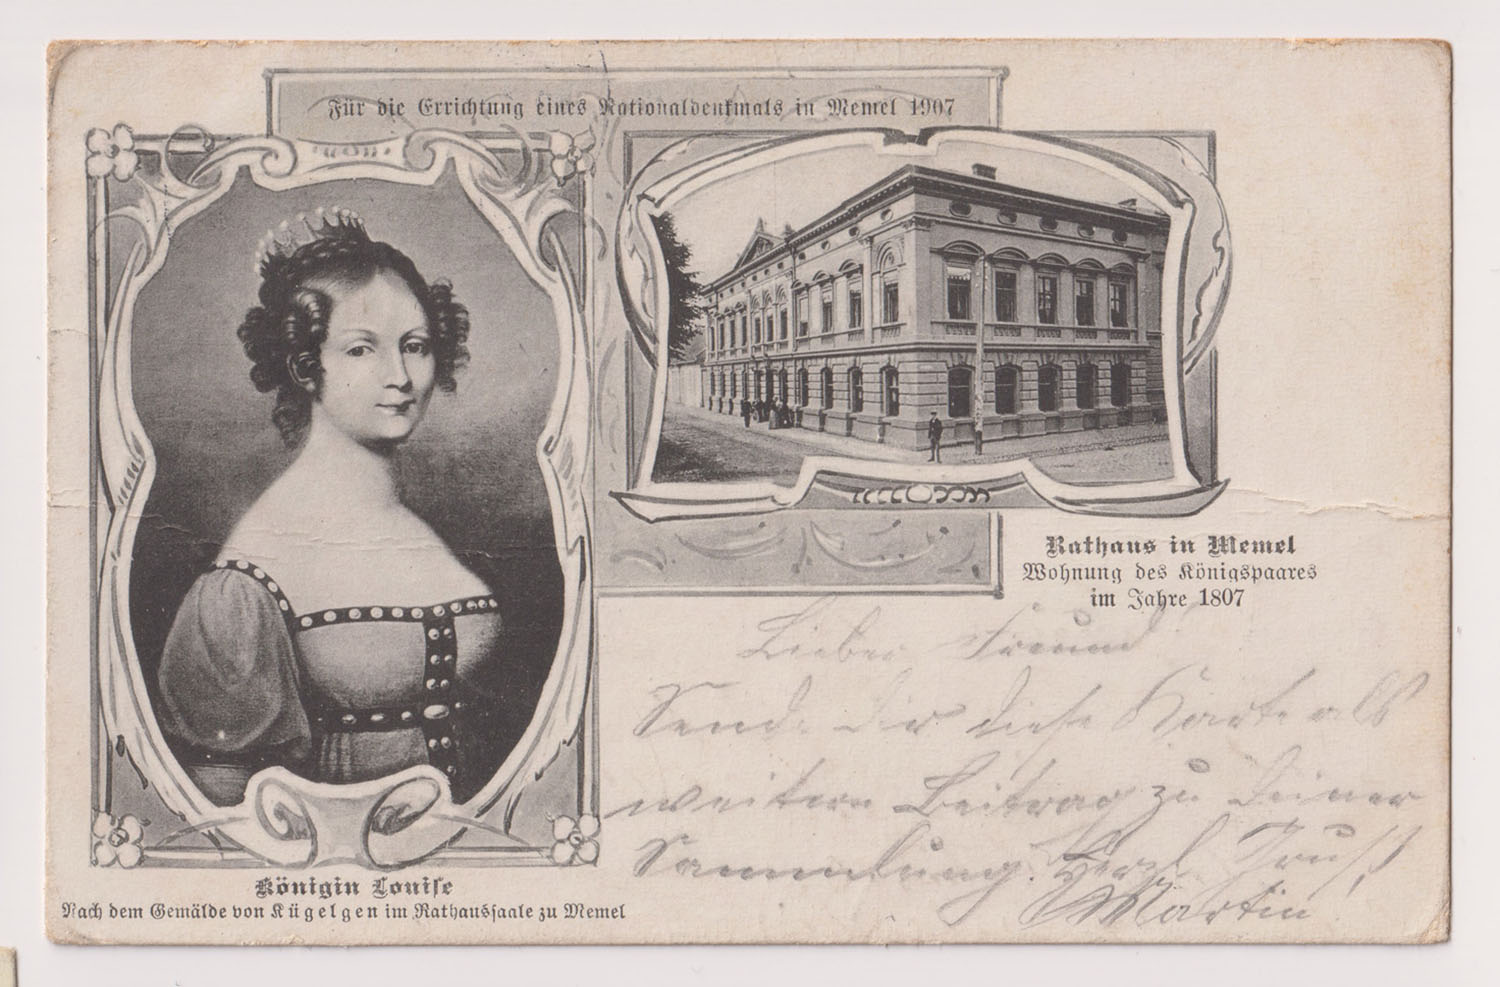 Für die Errichtung eines Nationaldenkmals in Memel 1907
Rathaus in Memel
Wohnung des Königspaares
im Jahre 1807
Königin Louise
Nach dem Gemälde von Kügelgen im Rathaussaale zu Memel
Lieber Freund
Send. Dir diese Karte als
weitern Beitrag zu Deiner
Sammlung. Herzl Gruß!
Martin